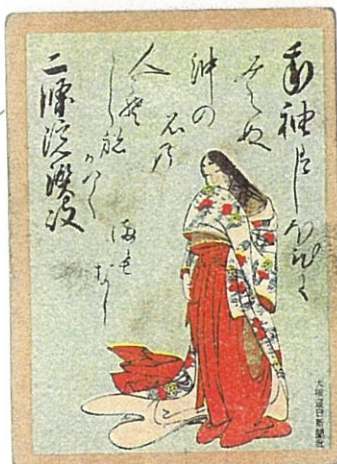 我袖はしほひに
みえぬ
沖の
石の
人こそ
しらね
かわく
まもなし
二條院讃岐
大阪毎日新聞社